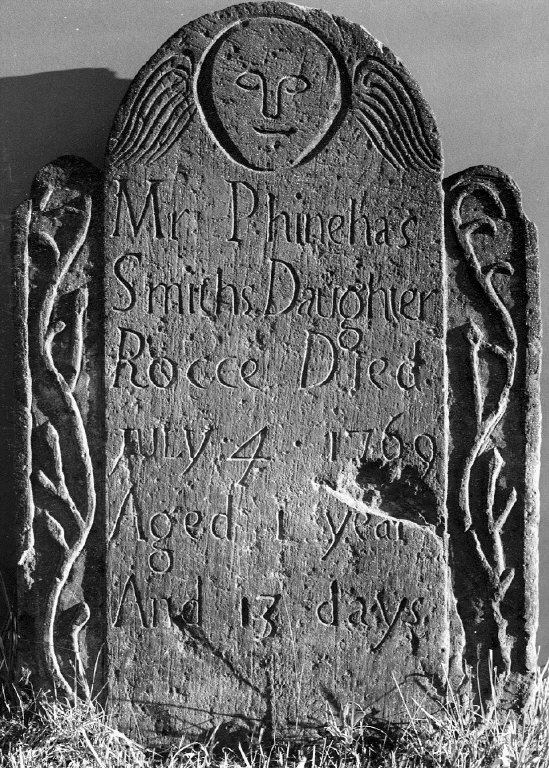 Mr. Phinehas
Smiths Daughter
Rocce Died
JULY 4 · 1769
Aged 1 year
And 13 days